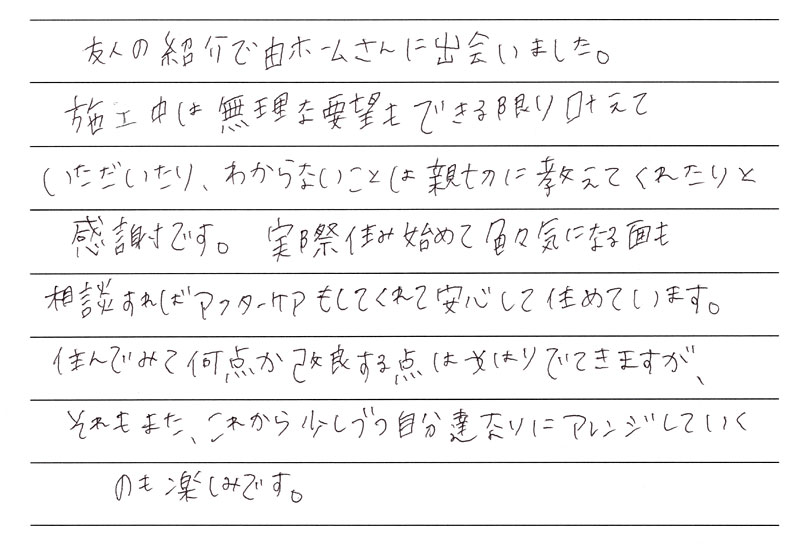 友人の紹介で由ホームさんに出会いました。
施工中は無理な要望もできる限り叶えて
いただいたり、わからないことは親切に教えてくれたりと
感謝です。 実際住み始めて色々気になる面も
相談すればアフターケアもしてくれて安心して住めています。
住んでみて何点か改良する点はやはりでてきますが、
それもまた、これから少しづつ自分達なりにアレンジしていく
のも楽しみです。